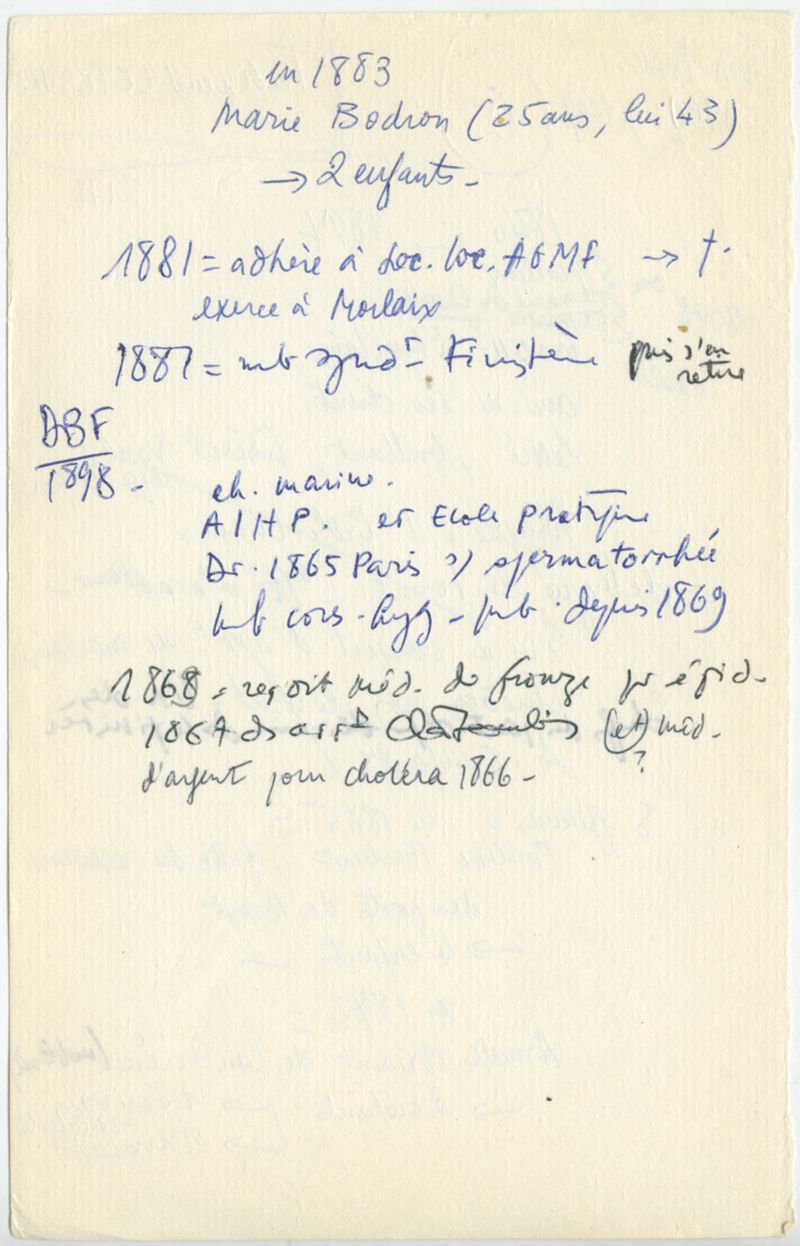 en 1883
Marie Bodron (25 ans, lui 43)
→ 2 enfants -
1881 = adhère à Soc. loc. AGMF → †.
exerce à Morlaix
1887 = mb synd^t Finistère puis s'en
retire
DBF
1898 - ch. marine.
AIHP. et Ecole pratique
Dr. 1865 Paris s/ spermatorrhée
mb cons. hyg - pub. depuis 1869
1868 = reçoit méd. de bronze pr épid.
1867 ds arr^t Châteaulin (et) méd.
?
d'argent pour choléra 1866 -